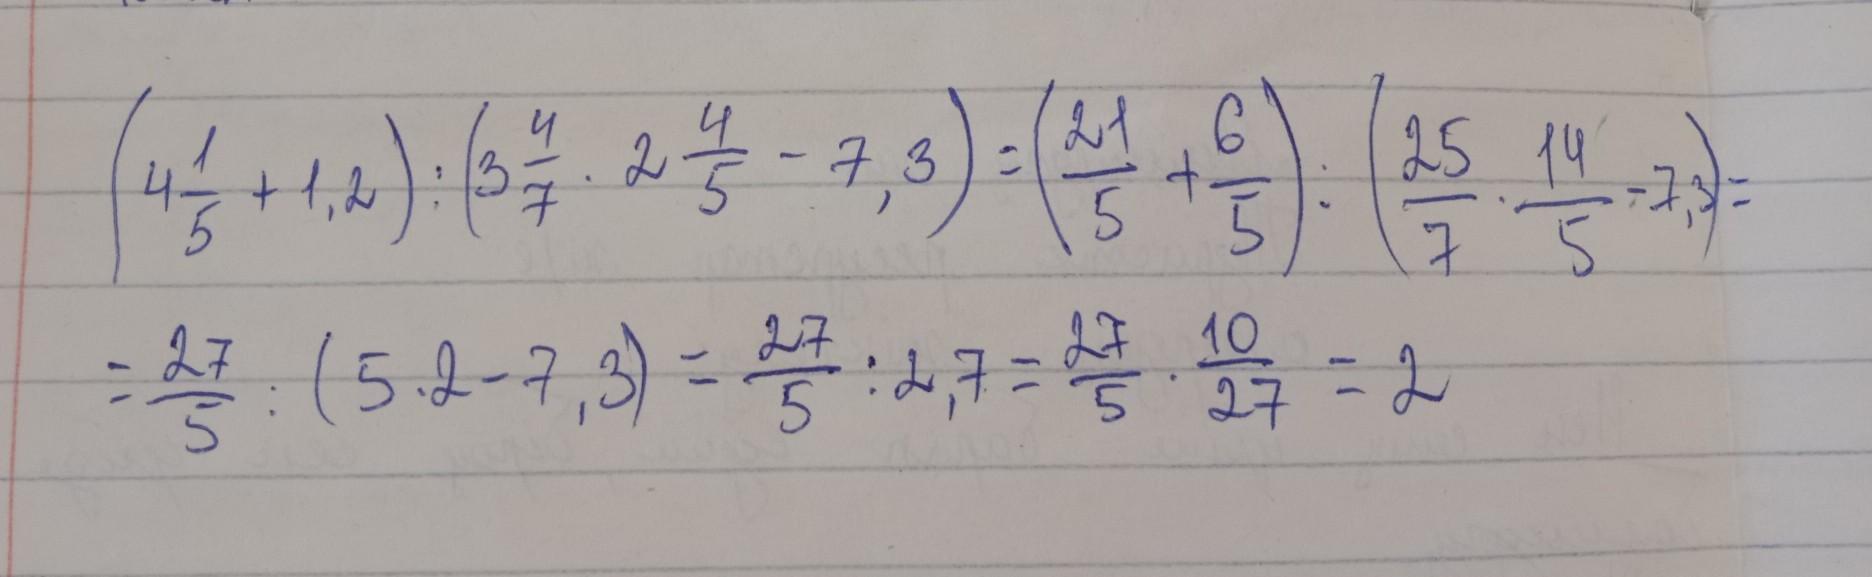 (4 1/5 + 1,2) : (3 4/7 · 2 4/5 - 7,3) = (21/5 + 6/5) : (25/7 · 14/5 - 7,3) =
= 27/5 : (5·2 - 7,3) = 27/5 : 2,7 = 27/5 · 10/27 = 2